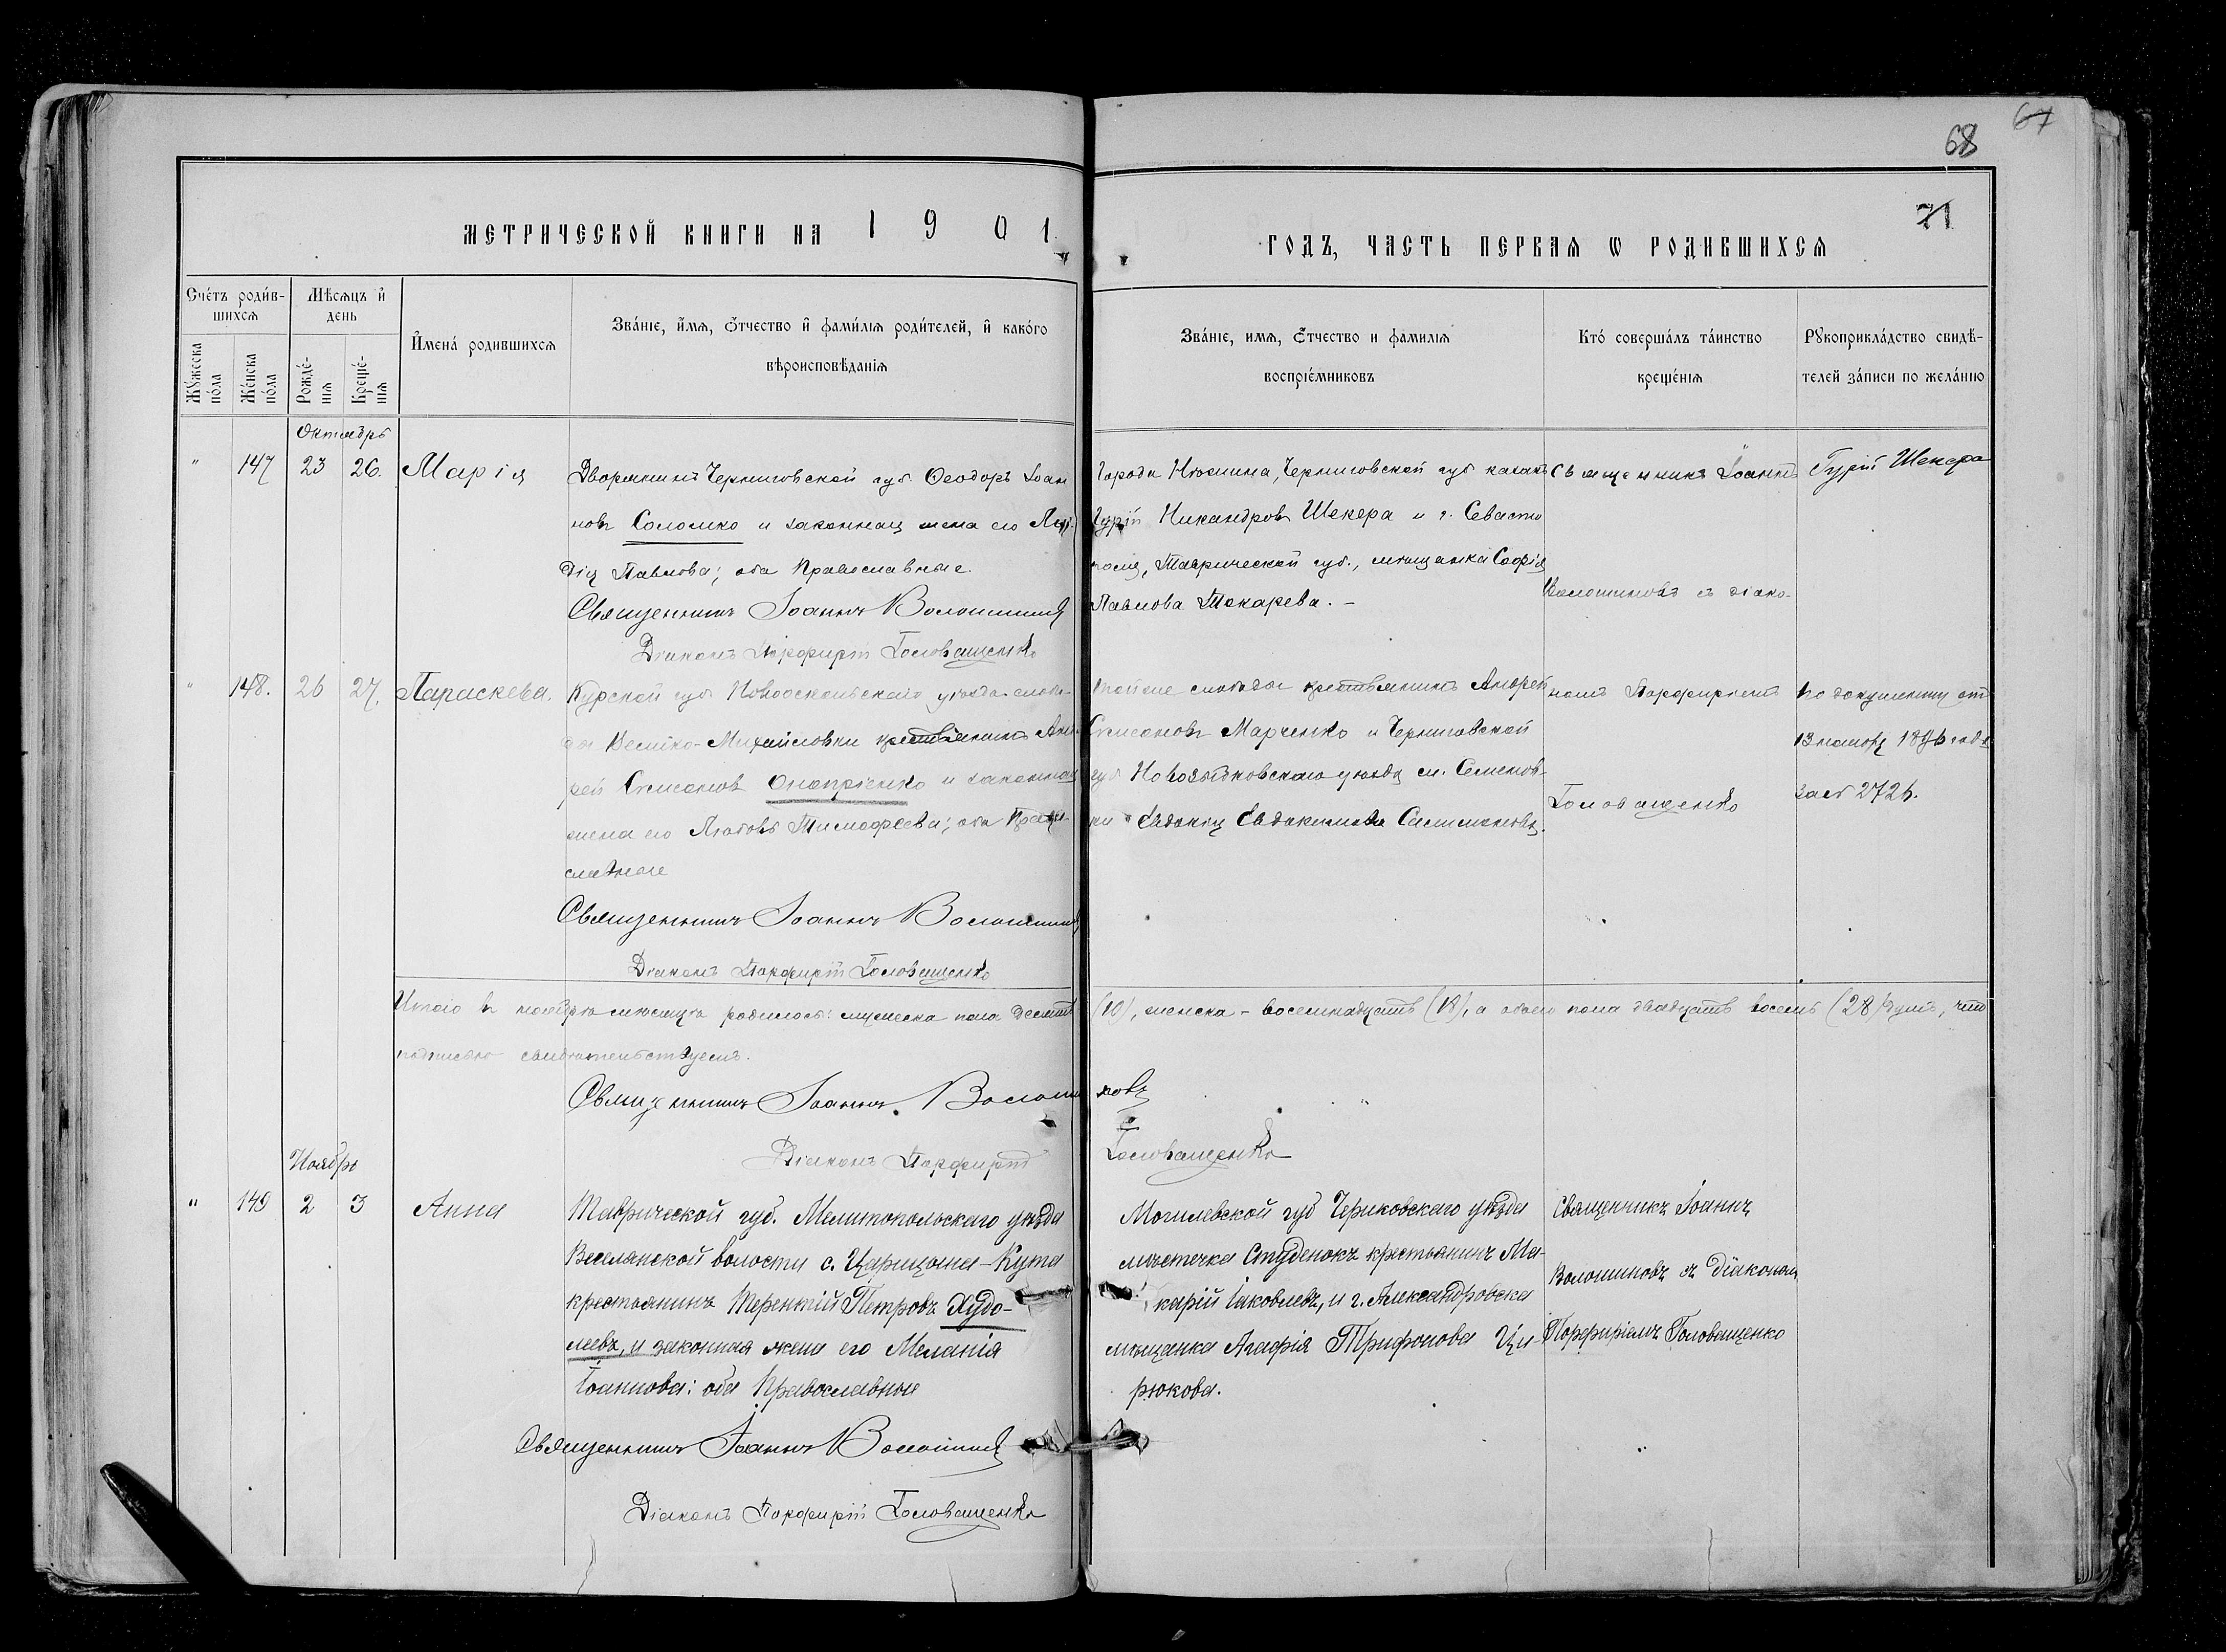 67
68
71
МЕТРИЧЕСКОЙ КНИГИ НА 1901
ГОДЪ, ЧАСТЬ ПЕРВАЯ Ѡ РОДИВШИХСЯ
Счётъ роди́в-
шихсѧ
Мѣсѧцъ и҆
день
Мꙋ́жеска
по́ла
Же́нска
по́ла
Рожде́-
нїѧ
Креще́-
нїѧ
И҆мена́ родившихсѧ
Зва́нїе, и҆́мѧ, ѻ҆́тчество и҆ фами́лїѧ роди́телей, и҆ како́гѡ
вѣроисповѣ́данїѧ
Зва́нїе, имѧ, ѻ҆́тчество и фамилїѧ
воспрїе́мниковъ
Кто́ соверша́лъ та́инство
креще́нїѧ
Рꙋкоприкла́дство свидѣ́-
телей за́писи по жела́нїю
Октябрь
" 147 23 26. Марія
Дворянинъ Черниговской губ. Ѳеодоръ Іоан
новъ Соломко и законная жена его Ли-
дія Павлова; оба Православные.
Священникъ Іоаннъ Волошиновъ
Діаконъ Порфирій Головащенко
Города Нѣжина, Черниговской губ казакъ
Гурій Никандровъ Шекера и г. Севасто
поля, Таврической губ., мѣщанка Софія
Павлова Токарева. -
Священникъ Іоаннъ
Волошиновъ съ діако-
Гурій Шекера
" 148. 26 27. Параскева.
Курской губ Новооскольскаго уѣзда слобо-
ды Велико-Михайловки крестьянинъ Анд-
рей Симеоновъ Оноприенко и законная
жена его Любовь Тимоѳеева; оба Право-
славные
Священникъ Іоаннъ Волошиновъ
Діаконъ Порфирій Головащенко
Той же слободы крестьянинъ Андрей
Симеоновъ Марченко и Черниговской
губ Новозыбковскаго уѣзда
Евдокія Евдокимова
номъ Порфиріемъ
Головащенко
По документу отъ
за № 2726.
Итого въ октябрѣ мѣсяцѣ родилось: мужеска пола десять (10), женска - восемнадцать (18), а обоего пола двадцать восемь (28) душъ, что
подписью свидѣтельствуемъ.
Священникъ Іоаннъ Волошиновъ
Діаконъ Порфирій Головащенко
Ноябрь
" 149 2 3 Анна
Таврической губ. Мелитопольскаго уѣзда
Веселянской волости с. Царицына-Кута
крестьянинъ Терентій Петровъ Худо-
леевъ, и законная жена его Меланія
Іоаннова: оба Православные
Священникъ Іоаннъ Волошиновъ
Діаконъ Порфирій Головащенко
Могилевской губ Чериковскаго уѣзда
мѣстечка Студенокъ крестьянинъ Ма-
карій Іаковлевъ, и г. Александровска
мѣщанка Агафія Трифонова Ци-
рюкова.
Священникъ Іоаннъ
Волошиновъ съ діакономъ
Порфиріемъ Головащенко